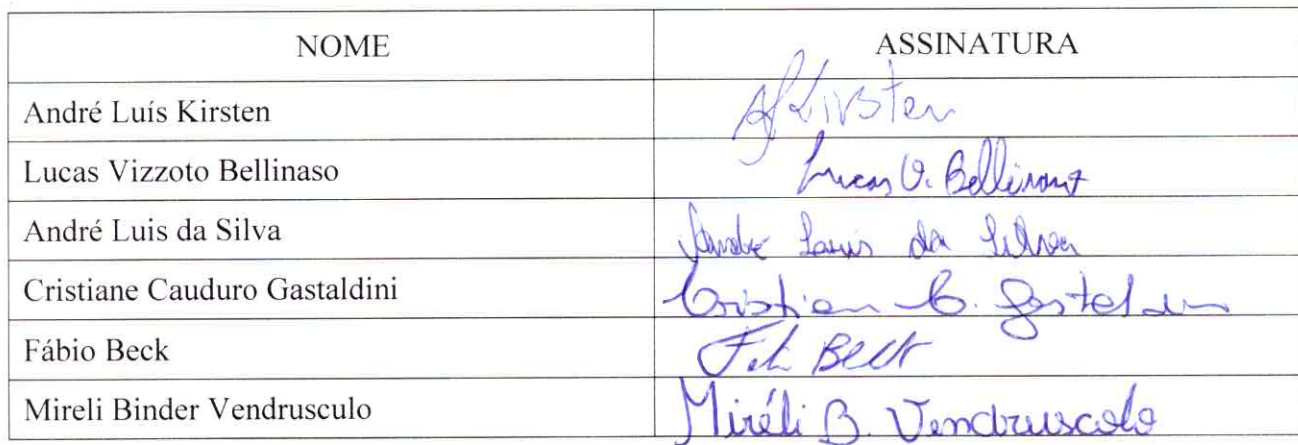 NOME ASSINATURA
André Luís Kirsten AKirsten
Lucas Vizzoto Bellinaso Lucas V. Bellinaso
André Luis da Silva André Luis da Silva
Cristiane Cauduro Gastaldini Cristiane C. Gastaldini
Fábio Beck Beck
Mireli Binder Vendrusculo Miréli B. Vendruscolo